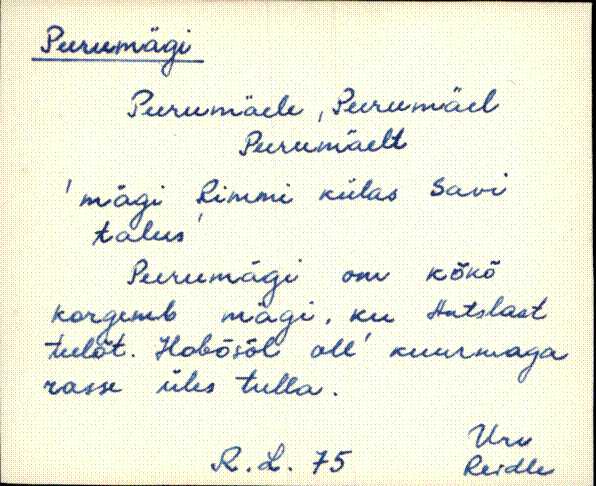 Peerumägi
Peerumäele, Peerumäel
Peerumäelt
'mägi Rimmi külas Savi
talus'
Peerumägi om kõkõ
korgemb mägi, ku Antslast
tulõt. Hobõsõl oll' kuurmaga
rasse üles tulla.
Uru
R. L. 75 Reidle